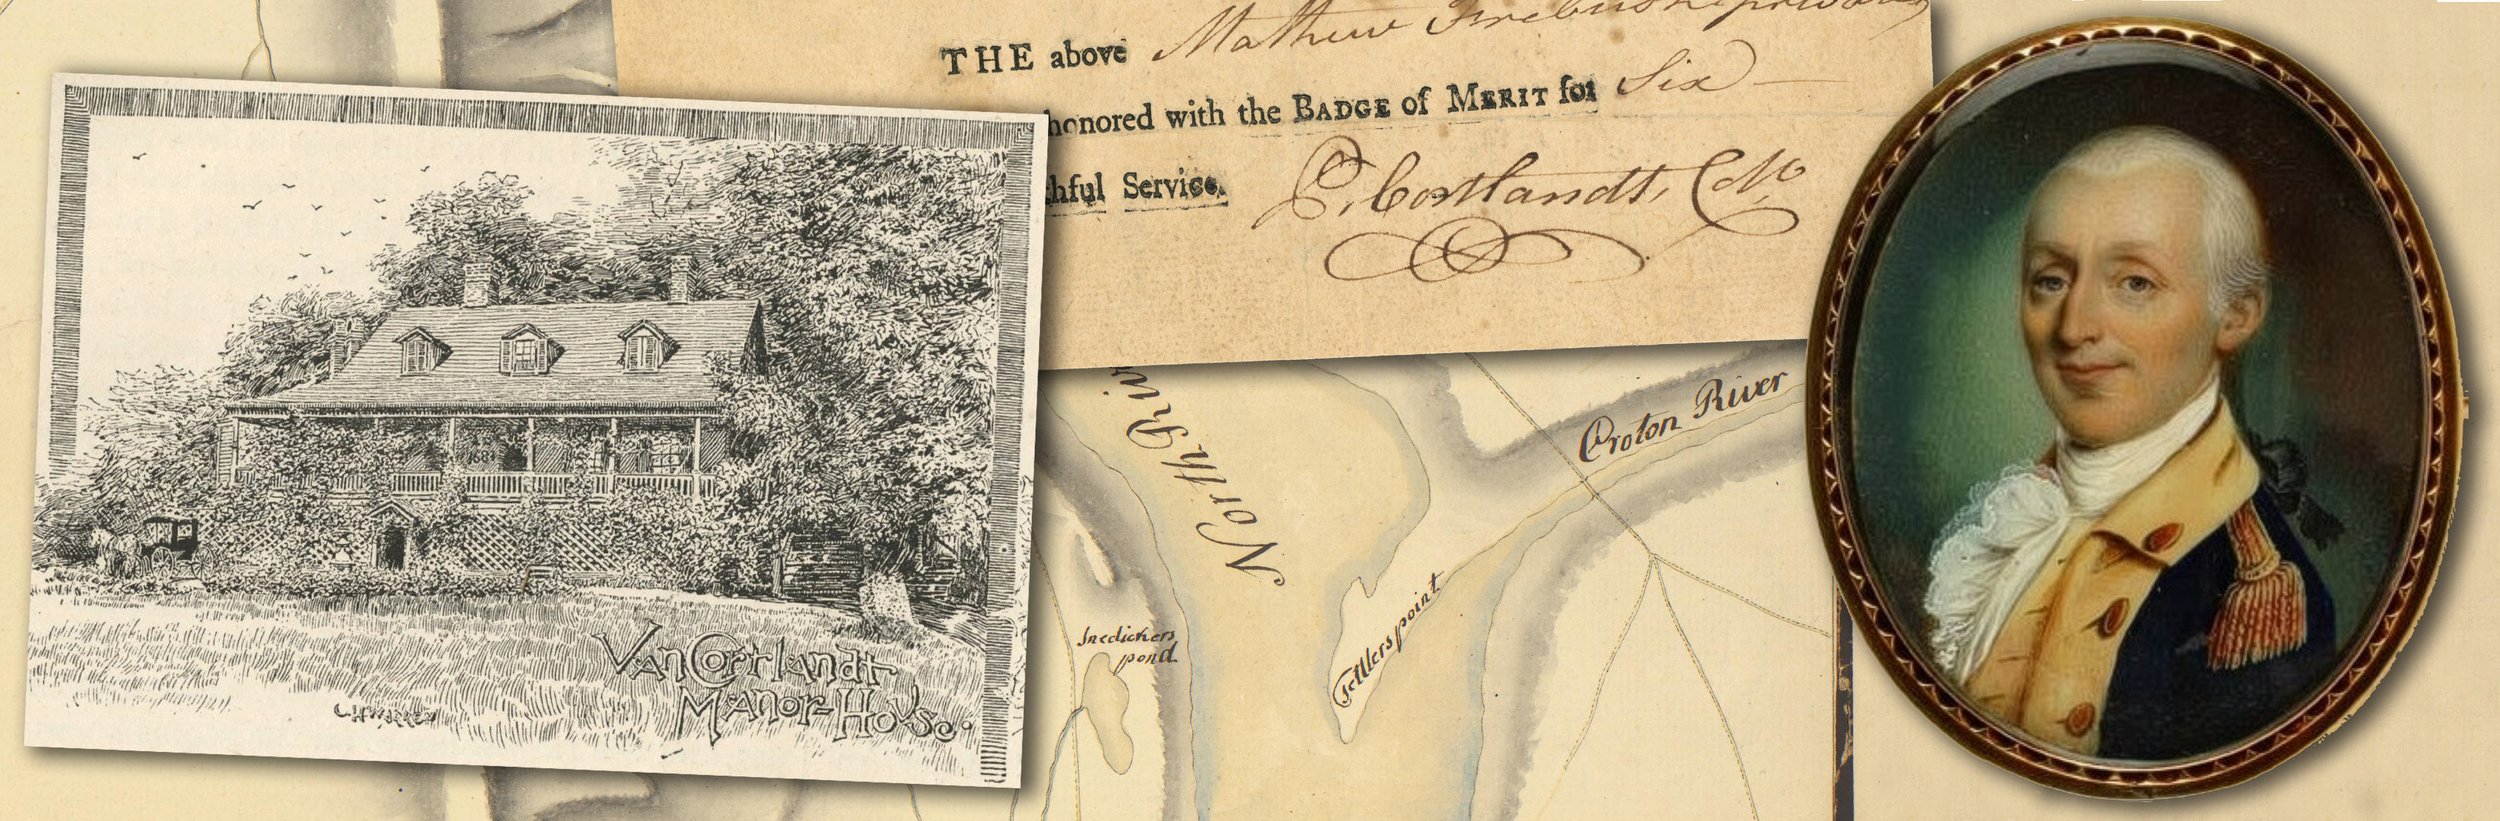 THE above Mathew
honored with the BADGE of MERIT for Six
thful Service.
P. Cortlandt, Col
1684
VanCortlandt
Manor-House.
C.H.WARREN
North Riv
Croton River
Tellers point
Snedickers
pond